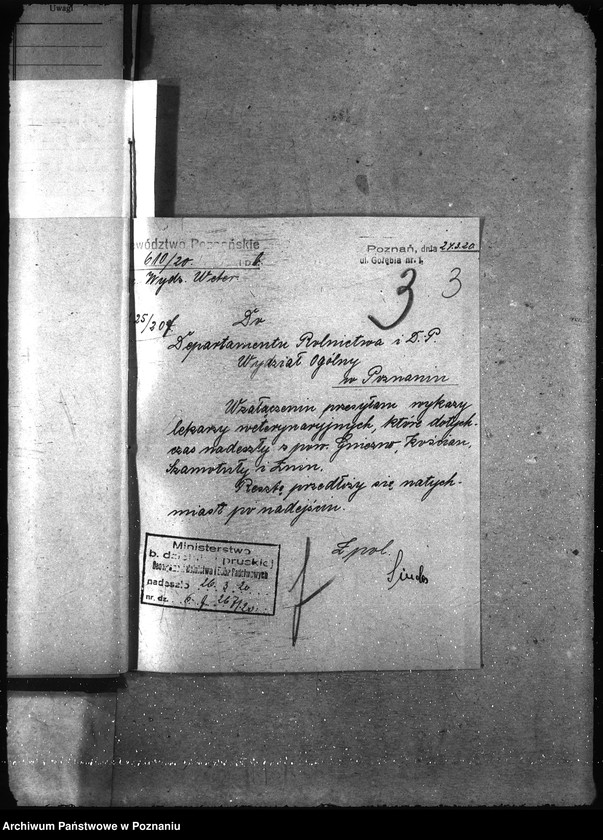 Uwagi
wództwo Poznańskie
610/20
Wydz. Weter.
Poznań, dnia 24.3.20
ul. Gołębia nr. 1.
3 3
25/20
Do
Departamentu Rolnictwa i D. P.
Wydział Ogólny
w Poznaniu
Wzałączeniu przesyłam wykazy
lekarzy weterynaryjnych, które dotych-
czas nadeszły z pow. Gniezno, Kościan,
Szamotuły i Żnin.
Resztę przedłoży się natych-
miast po nadejściu.
Z pol.
Ministerstwo
b. dzielnicy pruskiej
nadeszło 26. 3. 20.
nr. dz. 6. J. 267/20
Archiwum Państwowe w Poznaniu